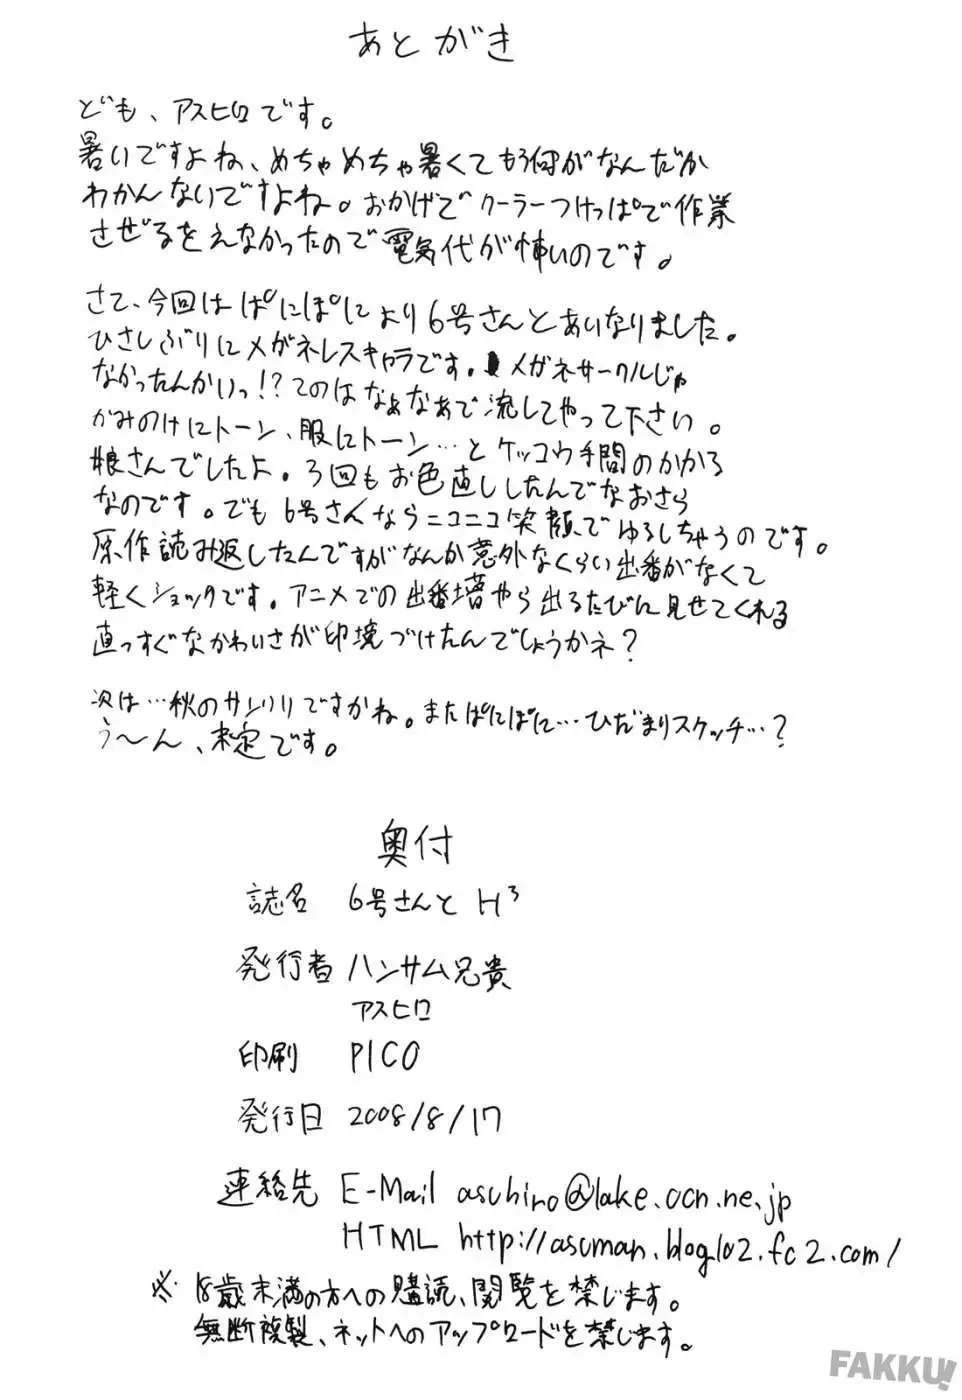 あとがき
ども、アスヒロです。
暑いですよね、めちゃめちゃ暑くてもう何がなんだか
わかんないですよね。おかげでクーラーつけっぱで作業
させざるをえなかったので電気代が怖いのです。
さて、今回はぱにぽにより6号さんとあいなりました。
ひさしぶりにメガネレスキャラです。メガネサークルじゃ
なかったんかいっ!?てのはなぁなあで流してやって下さい。
かみのけにトーン、服にトーン…とケッコウ手間のかかる
娘さんでしたよ。3回もお色直ししたんでなおさら
なのです。でも6号さんならニコニコ笑顔でゆるしちゃうのです。
原作読み返したんですがなんか意外なくらい出番がなくて
軽くショックです。アニメでの出番増やら出るたびに見せてくれる
直っすぐなかわいさが印境づけたんでしょうかネ?
次は…秋のサンクリですかね。またぱにぽに…ひだまりスケッチ…?
う〜ん、未定です。
奥付
誌名 6号さんとH³
発行者 ハンサム兄貴
アスヒロ
印刷 PICO
発行日 2008/8/17
連絡先 E-Mail asuhiro@lake.ocn.ne.jp
HTML http://asuman.blog102.fc2.com/
※ 18歳未満の方への購読、閲覧を禁じます。
無断複製、ネットへのアップロードを禁じます。
FAKKU!